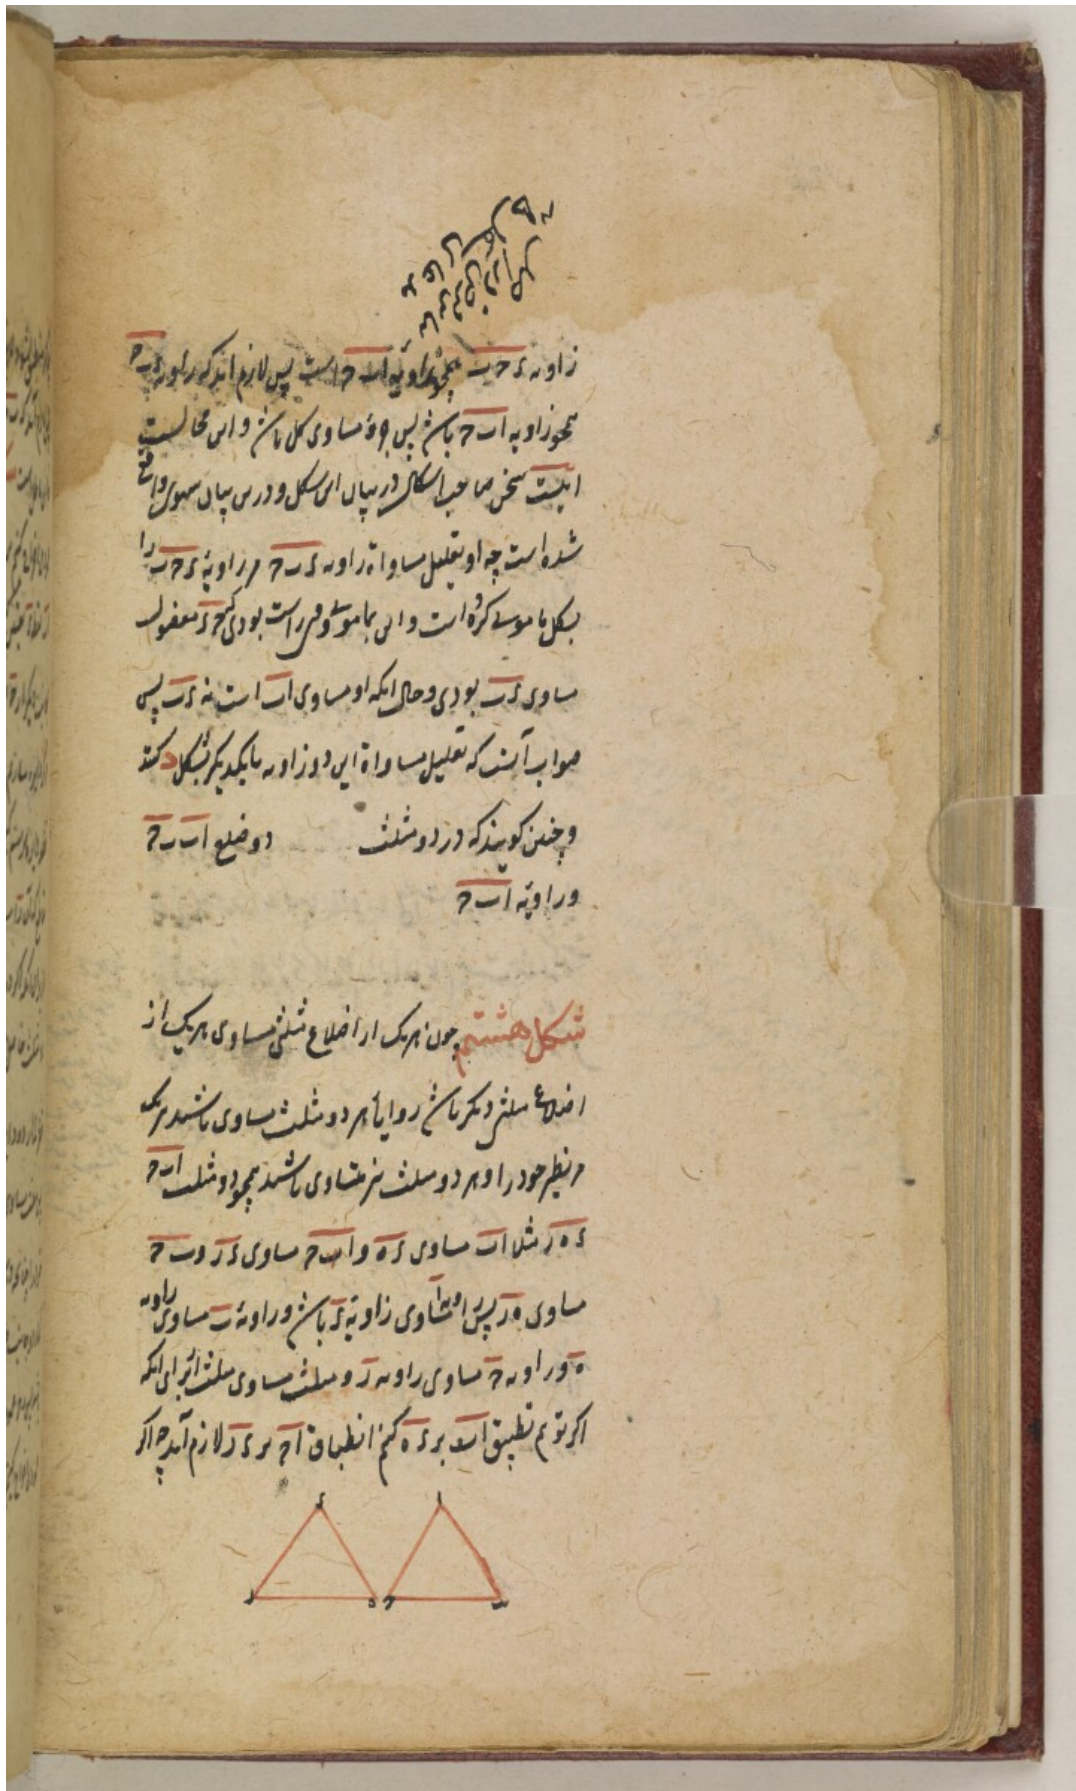 زاویه د ح ب همچو زاویه ا ب ح است پس لازم اید که زاویه د ب ح
همچو زاویه ا ب ح باشد پس جزء مساوی کل باشد و این محالست
اینست سخن صاحب اشکال در بیان این شکل و درین بیان سهوی واقع
شده است چه او تعلیل مساواة زاویه د ب ح مر زاویۀ د ح ب را
بشکل مامونی کرده است و این بمامونی وقتی راست بودی که ح د مفصول
مساوی د ب بودی و حال انکه او مساوی ا ب است نه د ب پس
صواب آنست که تعلیل مساواة این دو زاویه بایکدیگر بشکل د کنند
و چنین کویند که در دو مثلث دو ضلع ا ب ب ح
و زاویه ا ب ح
شکل هشتم چون هر یک از اضلاع مثلثی مساوی هر یک از
اضلاع مثلثی دیکر باشد زوایاء هر دو مثلث مساوی باشند هر یک
مر نظیر خود را و هر دو مثلث نیز متساوی باشند همچو دو مثلث ا ب ح
د ه ز مثلا ا ب مساوی د ه و ا ح مساوی د ز و ب ح
مساوی ه ز پس زاویه ا مساوی زاویۀ د باشد و زاویۀ ب مساوی زاویه
ه و زاویه ح مساوی زاویه ز و مثلث مساوی مثلث از برای انکه
اکر توهم تطبیق ا ب بر د ه کنیم انطباق ا ح بر د ز لازم آید چه اکر
د ا
ز ه ح ب